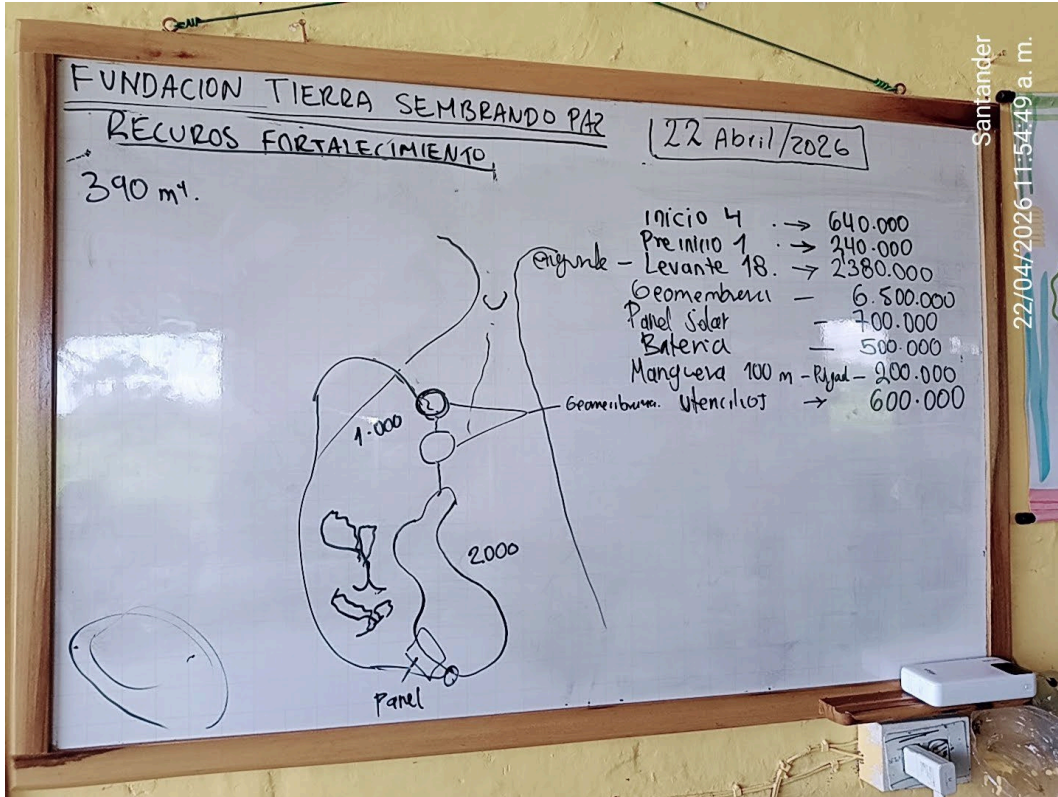 FUNDACION TIERRA SEMBRANDO PAZ
RECUROS FORTALECIMIENTO
22 Abril/2026
390 m
Inicio 4 → 640.000
Preinicio 1 → 340.000
Engorde - Levante 18. → 2'380.000
Geomembrana - 6.500.000
Panel Solar - 700.000
Bateria - 500.000
Manguera 100 m - - 200.000
Geomembrana. Utencilios → 600.000
1.000
2000
Panel
Santander
22/04/2026 11:54:49 a. m.